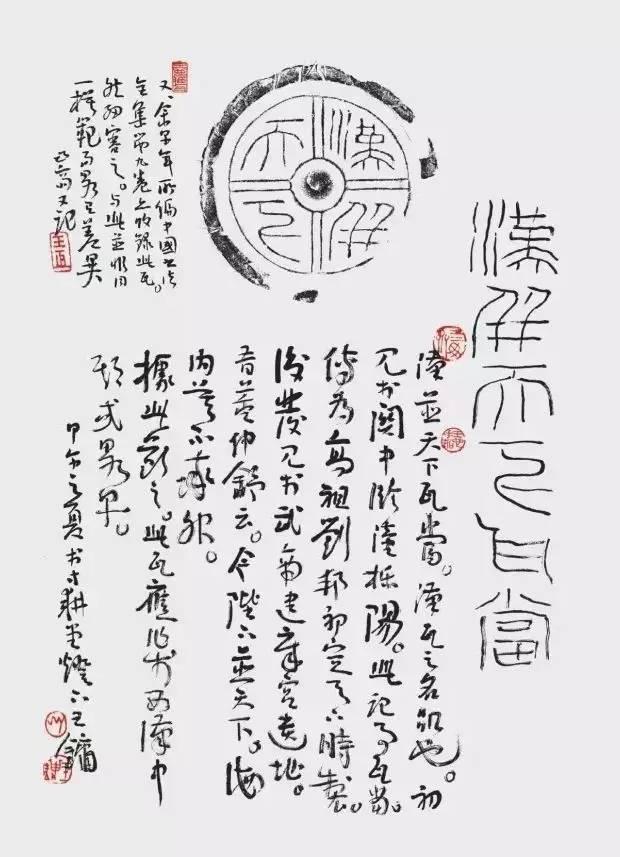 漢并天下
漢并天下瓦當
漢並天下瓦當。漢瓦之名品也。初
見於關中臨潼櫟陽。此記事瓦當。
傳為高祖劉邦初定天下時製。
後發見於武帝建章宮遺址。
昔董仲舒云。今陛下並天下。海
內莫不率服。
據此斷之。此瓦應作於西漢中
期或略早。
甲午之夏書於耕堂燈下王鏞
又、余早年所編中國書法
全集第九卷上收錄此瓦。
然細審之。与此並非同
一模範而略有差異
凸斋又記